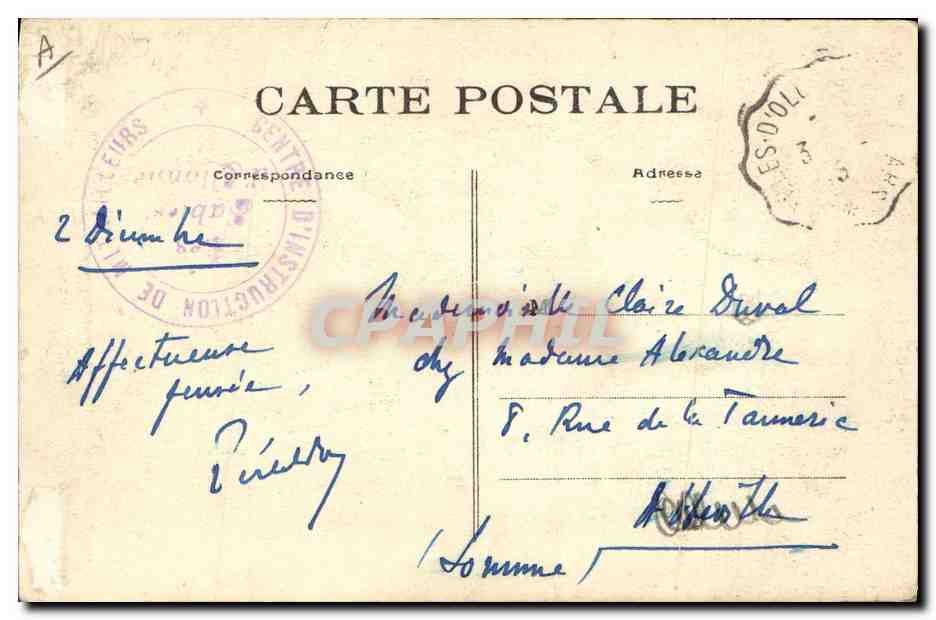 A
CARTE POSTALE
CENTRE D'INSTRUCTION DE MITRAILLEURS
Correspondance
Adresse
Les Sables
LES-D'OL
2 Décembre
Affectueuse
pensée,
Mademoiselle Claire Duval
chez Madame Alexandre
8, Rue de la Tannerie
(Somme)
CPAPHIL